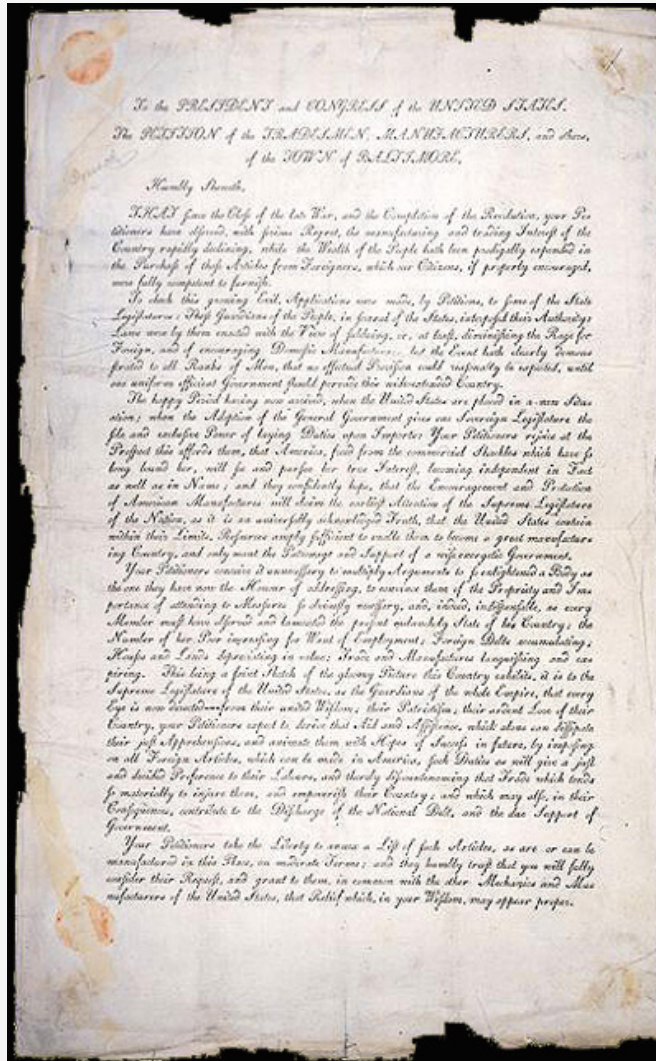 To the PRESIDENT and CONGRESS of the UNITED STATES.
The PETITION of the TRADESMEN, MANUFACTURERS, and others,
of the TOWN of BALTIMORE,
Humbly Sheweth,
THAT since the Close of the late War, and the Completion of the Revolution, your Pe-
titioners have observed, with serious Regret, the manufacturing and trading Interest of the
Country rapidly declining, while the Wealth of the People hath been prodigally expended in
the Purchase of those Articles from Foreigners, which our Citizens, if properly encouraged,
were fully competent to furnish.
To check this growing Evil, Applications were made, by Petitions, to some of the State
Legislatures: These Guardians of the People, in several of the States, interposed their Authority:
Laws were by them enacted with the View of subduing, or, at least, diminishing the Rage for
Foreign, and of encouraging Domestic Manufactures; but the Event hath clearly demon-
strated to all Ranks of Men, that no effectual Provision could reasonably be expected, until
one uniform efficient Government should pervade this wide-extended Country.
The happy Period having now arrived, when the United States are placed in a new Situ-
ation; when the Adoption of the General Government gives one Sovereign Legislature the
sole and exclusive Power of laying Duties upon Imports; Your Petitioners rejoice at the
Prospect this affords them, that America, freed from the commercial Shackles which have so
long bound her, will see and pursue her true Interest, becoming independent in Fact
as well as in Name; and they confidently hope, that the Encouragement and Protection
of American Manufactures will claim the earliest Attention of the Supreme Legislature
of the Nation, as it is an universally acknowledged Truth, that the United States contain
within their Limits, Resources amply sufficient to enable them to become a great manufactur-
ing Country, and only want the Patronage and Support of a wise energetic Government.
Your Petitioners conceive it unnecessary to multiply Arguments to so enlightened a Body as
the one they have now the Honour of addressing, to convince them of the Propriety and Im-
portance of attending to Measures so obviously necessary, and, indeed, indispensable, as every
Member must have observed and lamented the present melancholy State of his Country; the
Number of her Poor increasing for Want of Employment; Foreign Debts accumulating;
Houses and Lands depreciating in value; Trade and Manufactures languishing and ex-
piring. This being a faint Sketch of the gloomy Picture this Country exhibits, it is to the
Supreme Legislature of the United States, as the Guardians of the whole Empire, that every
Eye is now directed---from their united Wisdom; their Patriotism; their ardent Love of their
Country, your Petitioners expect to derive that Aid and Assistance, which alone can dissipate
their just Apprehensions, and animate them with Hopes of Success in future, by imposing
on all Foreign Articles, which can be made in America, such Duties as will give a just
and decided Preference to their Labours, and thereby discountenancing that Trade which tends
so materially to injure them, and impoverish their Country; and which may also, in their
Consequences, contribute to the Discharge of the National Debt, and the due Support of
Government.
Your Petitioners take the Liberty to annex a List of such Articles, as are or can be
manufactured in this Place, on moderate Terms; and they humbly trust that you will fully
consider their Request, and grant to them, in common with the other Mechanics and Ma-
nufacturers of the United States, that Relief which, in your Wisdom, may appear proper.